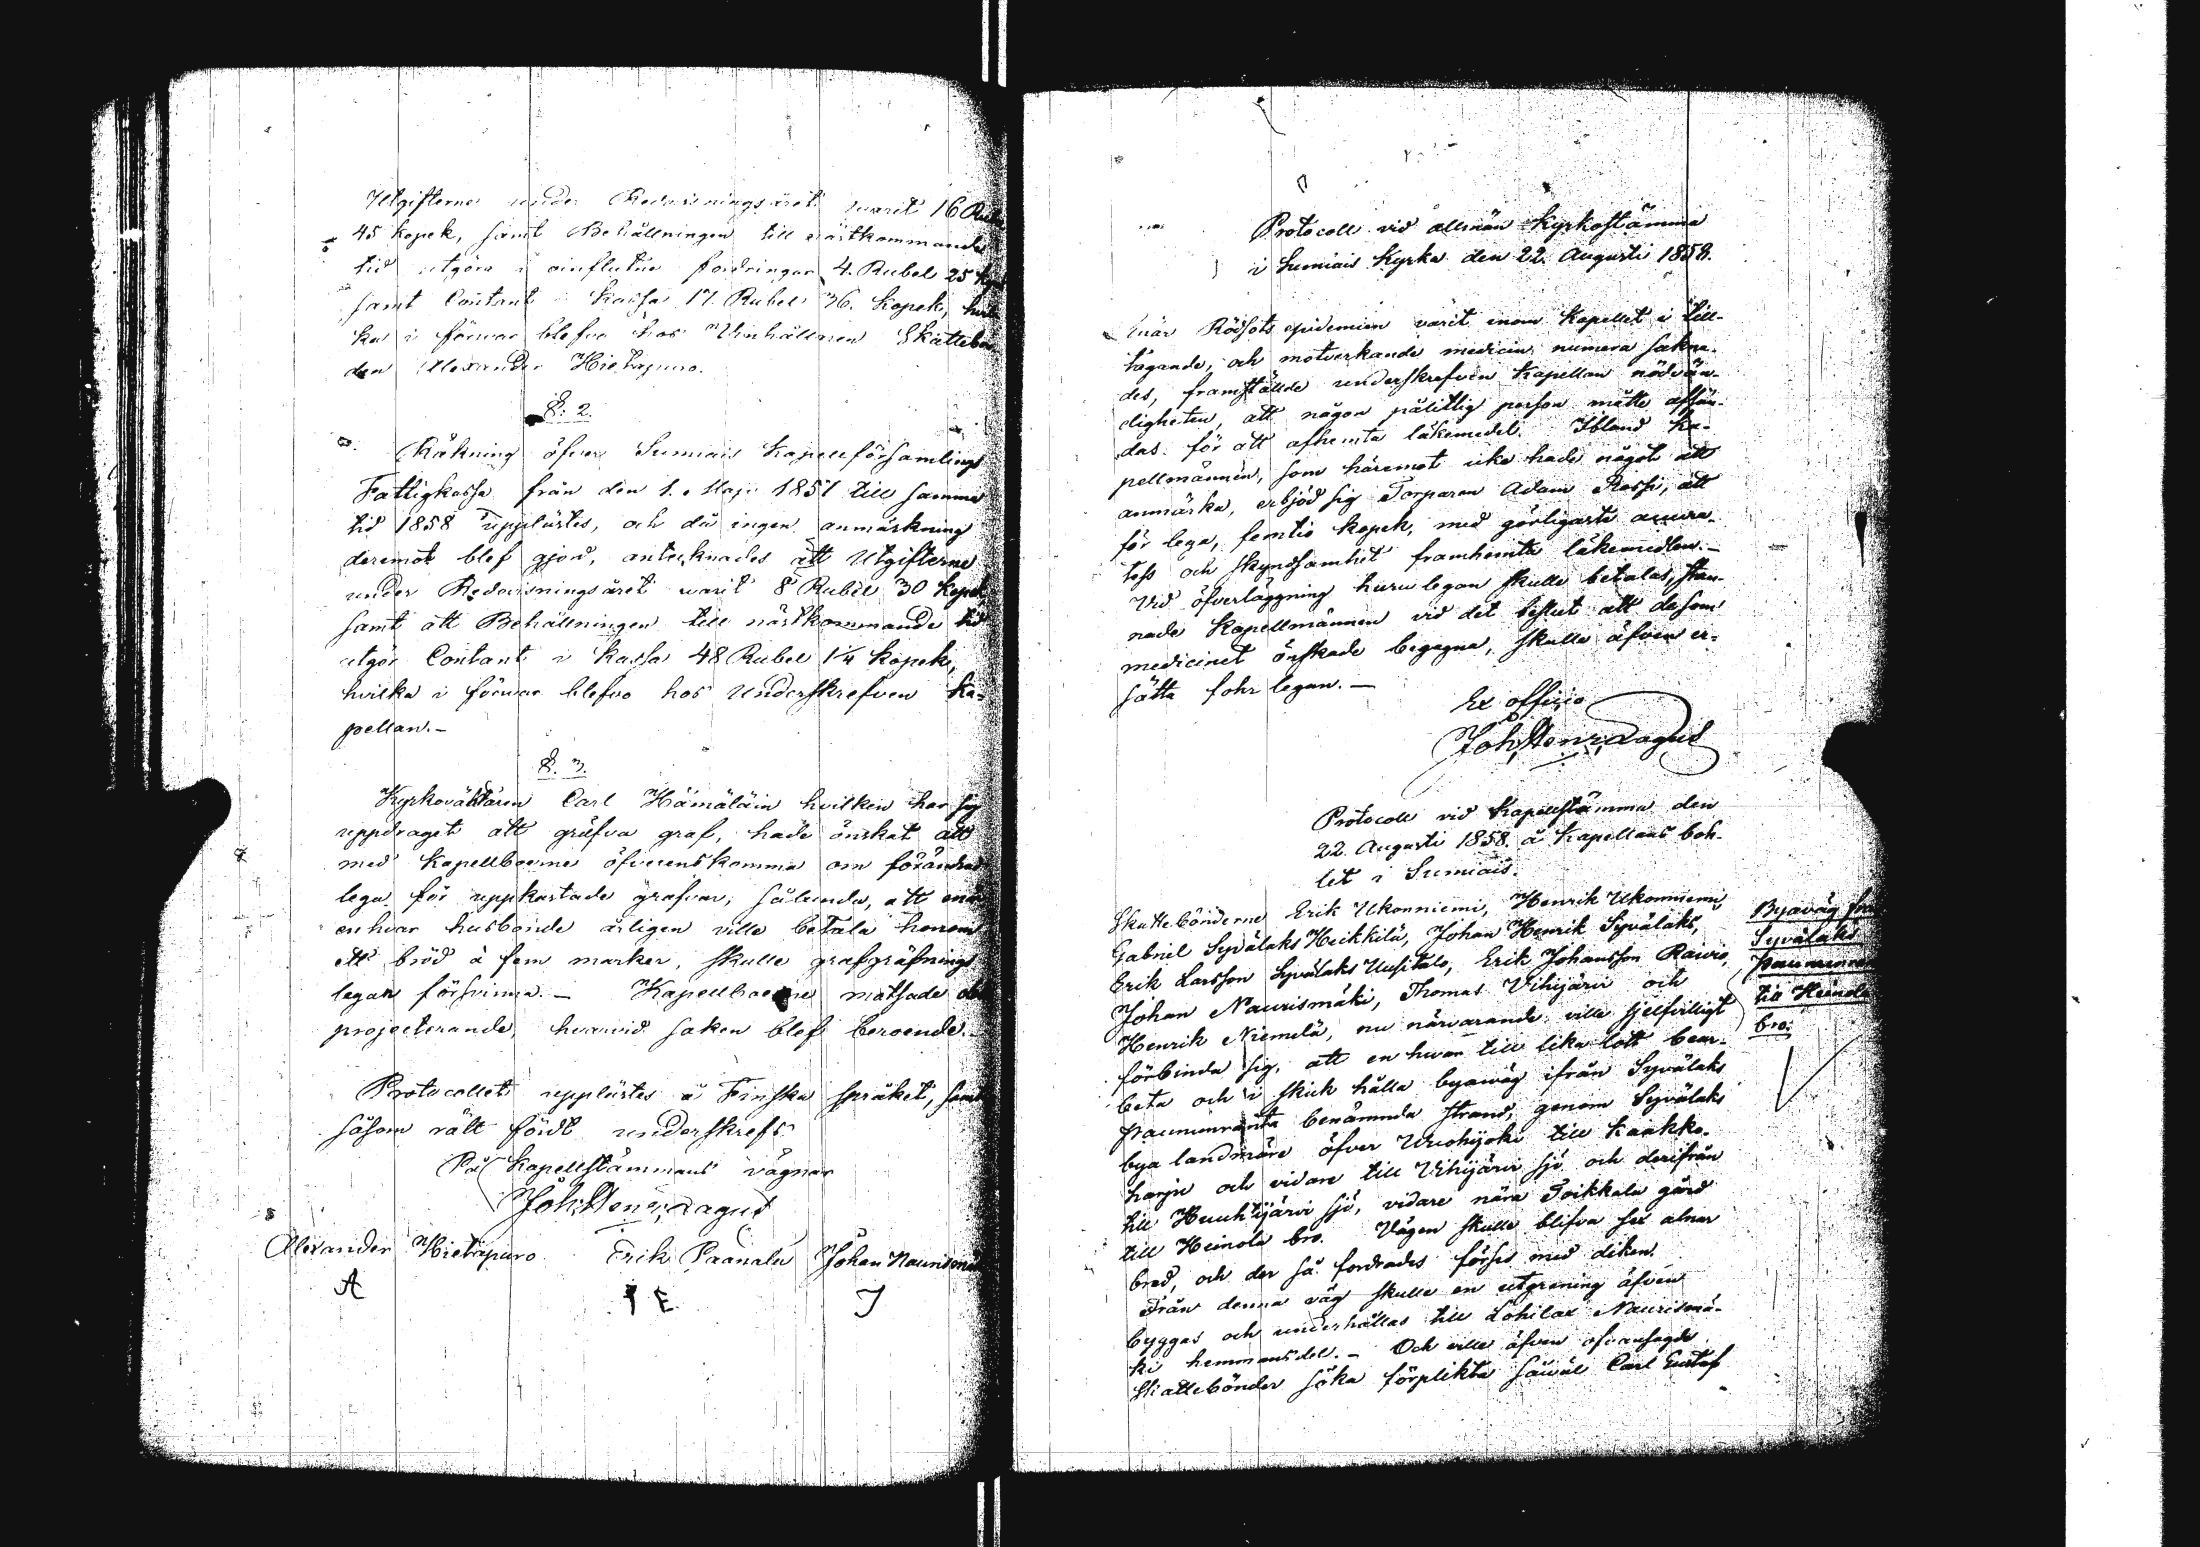 Utgifterne under Redovisningsåret varit 16 Rubel
45 kopek, samt Behållningen till nästkommande
tid utgöra i oinflutne fordringar 4. Rubel 25 kop
samt Contant i Kassa 17. Rubel 36. kopek, hvil-
ka i förvar blefvo hos Skattebon-
den Alexander Hietapuro.
§. 2.
Räkning öfver Sumiais Kapellförsamlings
Fattigkassa från den 1. Maji 1857 till samma
tid 1858 upplästes, och då ingen anmärkning
deremot blef gjord, antecknades att Utgifterne
under Redovisningsåret varit 8 Rubel 30 kopek,
samt att Behållningen till nästkommande tid
utgör Contant i Kassa 48 Rubel 1 1/4 kopek,
hvilka i förvar blefvo hos underskrefven Ka-
pellan. -
§. 3.
Kyrkoväktaren Carl Hämäläin hvilken har sig
uppdraget att gräfva graf, hade önskat att
med Kapellboerne öfverenskomma om förändrad
lega för uppkastade grafvar, sålunda, att
enhvar husbonde årligen ville betala honom
ett bröd à fem marker, skulle grafgräfnings
legan försvinna. - Kapellboerne motsade
projecterande, hvarvid saken blef beroende. -
Protocollet upplästes å Finska språket, samt
såsom rätt fördt underskrefs.
På Kapellstämmans vägnar
Joh. Henr. Lagus
Alexander Hietapuro Erik Paanala Johan Naurismäki
A E J
Protocoll vid allmän Kyrkostämma
i Sumiais Kyrka den 22. Augusti 1858.
När Rödsots epidemien varit inom Kapellet i till-
tagande, och motverkande medicin numera sakna-
des, framställde underskrefven Kapellan nödvän-
digheten, att någon pålitlig person måtte afsän-
das för att afhemta läkemedel. Ibland Ka-
pellmännen, som häremot icke hade något att
anmärka, erbjöd sig Torparen Adam Rossi, att
för lega, femtio kopek, med görligaste accura-
tess och skyndsamhet framhemta läkemedlen. -
Vid öfverläggning huru legan skulle betalas, stan-
nade Kapellmännen vid det beslut att de som
medicinet önskade begagna, skulle äfven er-
sätta fohrlegan. -
Ex officio
Joh. Henr. Lagus
Protocoll vid Kapellstämma den
22. Augusti 1858. å Kapellans bohl-
let i Sumiais.
Skattebönderne Erik Ukonniemi, Henrik Ukonniemi,
Gabriel Syvälaks Heikkilä, Johan Henrik Syvälaks,
Erik Larsson Syvälaks Uusitalo, Erik Johansson Raivio,
Johan Naurismäki, Thomas Vihijärvi och
Henrik Niemelä, nu närvarande ville sjelfvilligt
förbinda sig, att en hvar till lika lott bear-
beta och i skick hålla byaväg ifrån Syvälaks
Paununranta benämnda strand, genom Syvälaks
bya landmäre öfver till Kaakko-
harju och vidare till Vihijärvi sjö och derifrån
till Huuhtijärvi sjö, vidare nära Toikkala gård
till Heinola bro. Vägen skulle blifva sex alnar
bred, och der så fordrades förses med diken.
Från denna väg skulle en utgrening äfven
byggas och underhållas till Lohilax Naurismä-
ki hemmansdel. - Och ville äfven ofvansagde
Skattebönder söka förplikta såväl Carl Gustaf
Byaväg från
Syvälaks
Paununran
till Heinola
bro.